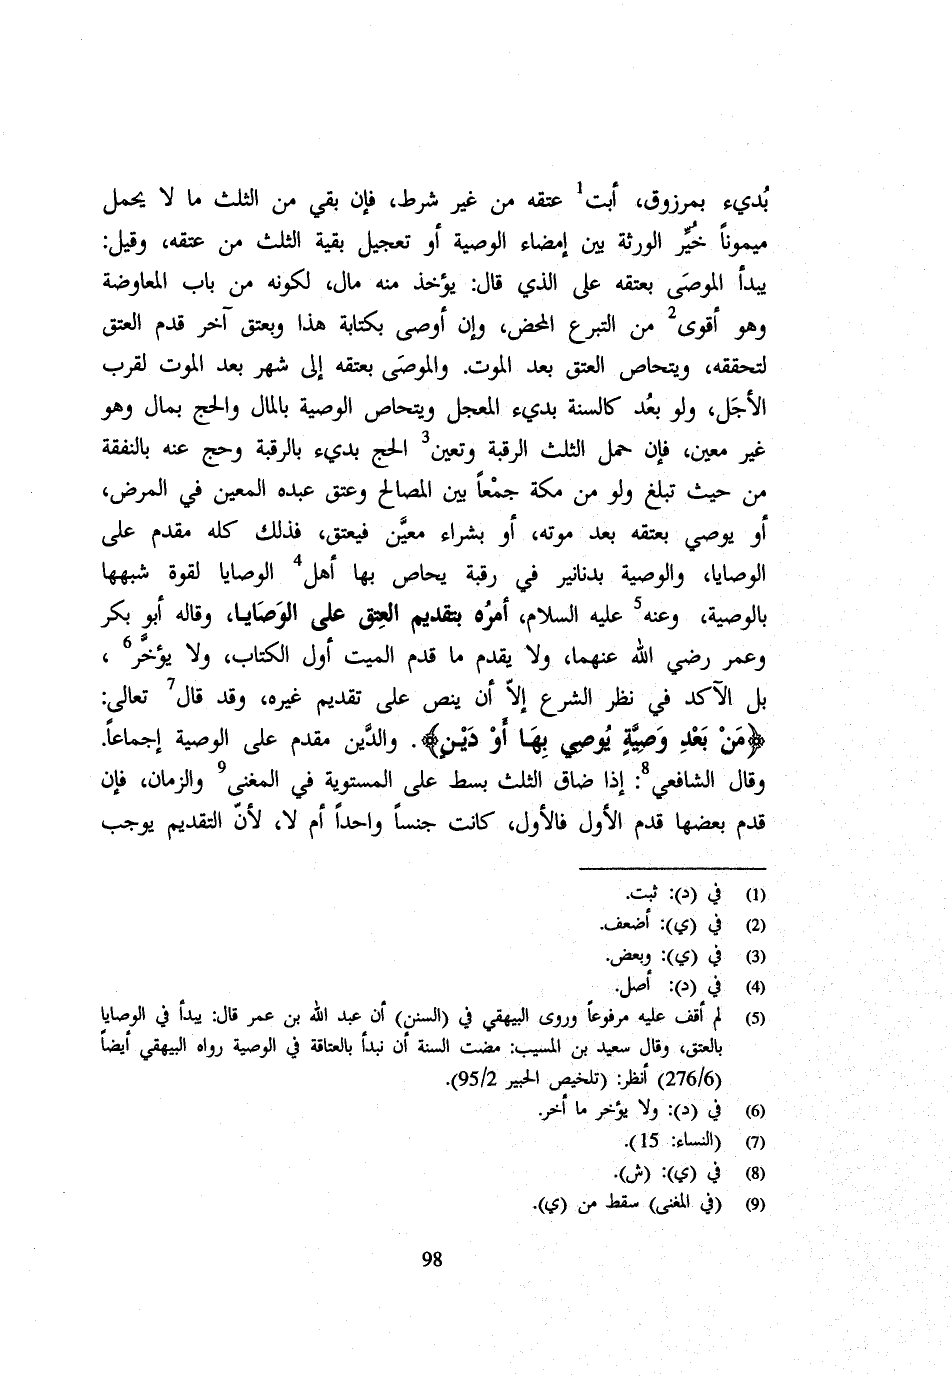 بُديء بمرزوق، أبت1 عتقه من غير شرط، فإن بقي من الثلث ما لا يحمل
ميموناً خُيِّر الورثة بين إمضاء الوصية أو تعجيل بقية الثلث من عتقه، وقيل:
يبدأ الموصَى بعتقه على الذي قال: يؤخذ منه مال، لكونه من باب المعاوضة
وهو أقوى2 من التبرع المحض، وإن أوصى بكتابة هذا وبعتق آخر قدم العتق
لتحققه، ويتحاص العتق بعد الموت. والموصَى بعتقه إلى شهر بعد الموت لقرب
الأجَل، ولو بعُد كالسنة بديء المعجل ويتحاص الوصية بالمال والحج بمال وهو
غير معين، فإن حمل الثلث الرقبة وتعين3 الحج بديء بالرقبة وحج عنه بالنفقة
من حيث تبلغ ولو من مكة جمْعاً بين المصالح وعتق عبده المعين في المرض،
أو يوصي بعتقه بعد موته، أو بشراء معيَّن فيعتق، فذلك كله مقدم على
الوصايا، والوصية بدنانير في رقبة يحاص بها أهل4 الوصايا لقوة شبهها
بالوصية، وعنه5 عليه السلام، أمرُه بتقديم العِتق على الوَصَايا، وقاله أبو بكر
وعمر رضي الله عنهما، ولا يقدم ما قدم الميت أول الكتاب، ولا يؤخَّر6 ،
بل الآكد في نظر الشرع إلاّ أن ينص على تقديم غيره، وقد قال7 تعالى:
﴿مَنْ بَعْدِ وَصِيَّةٍ يُوصِي بِهَا أَوْ دَيْنٍ﴾. والدَّين مقدم على الوصية إجماعاً.
وقال الشافعي8: إذا ضاق الثلث بسط على المستوية في المغنى9 والزمان، فإن
قدم بعضها قدم الأول فالأول، كانت جنساً واحداً أم لا، لأنّ التقديم يوجب
(1) في (د): ثبت.
(2) في (ي): أضعف.
(3) في (ي): وبعض.
(4) في (د): أصل.
(5) لم أقف عليه مرفوعاً وروى البيهقي في (السنن) أن عبد الله بن عمر قال: يبدأ في الوصايا
بالعتق، وقال سعيد بن المسيب: مضت السنة أن نبدأ بالعتاقة في الوصية رواه البيهقي أيضاً
(276/6) أنظر: (تلخيص الحبير 95/2).
(6) في (د): ولا يؤخر ما أخر.
(7) (النساء: 15).
(8) في (ي): (ش).
(9) (في المغنى) سقط من (ي).
98